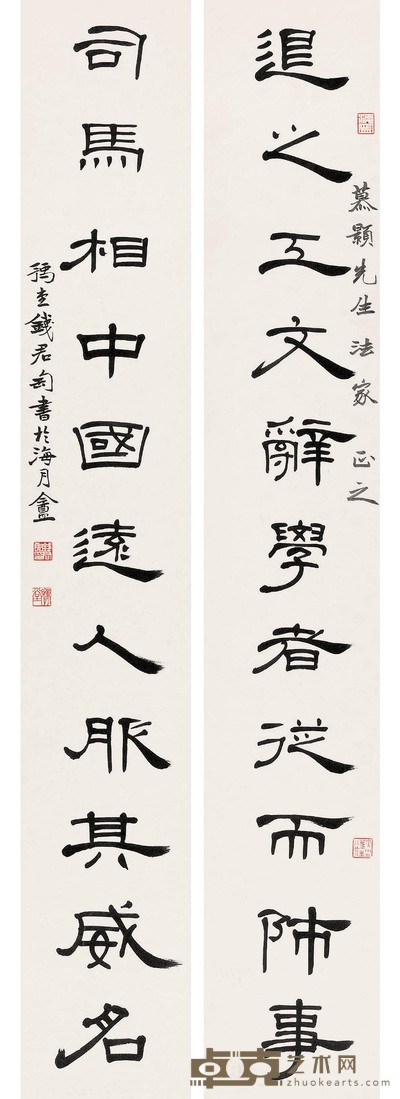 慕顥先生法家 正之
退之工文辭學者從而師事
司馬相中國遠人服其威名
豫堂錢君匋書於海月盦
卓克艺术网
zhuokearts.com